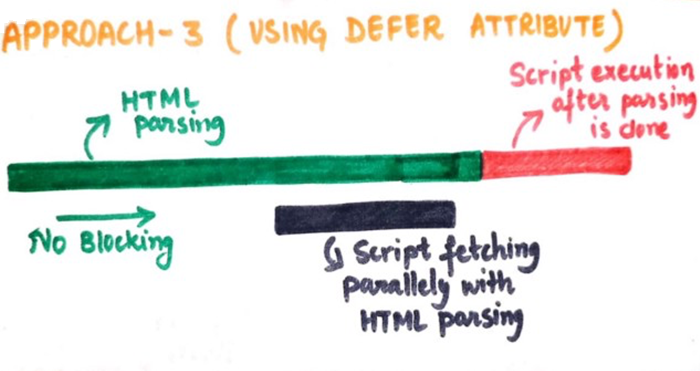 APPROACH-3 (USING DEFER ATTRIBUTE)
HTML
parsing
Script execution
after parsing
is done
No Blocking
Script fetching
parallely with
HTML parsing